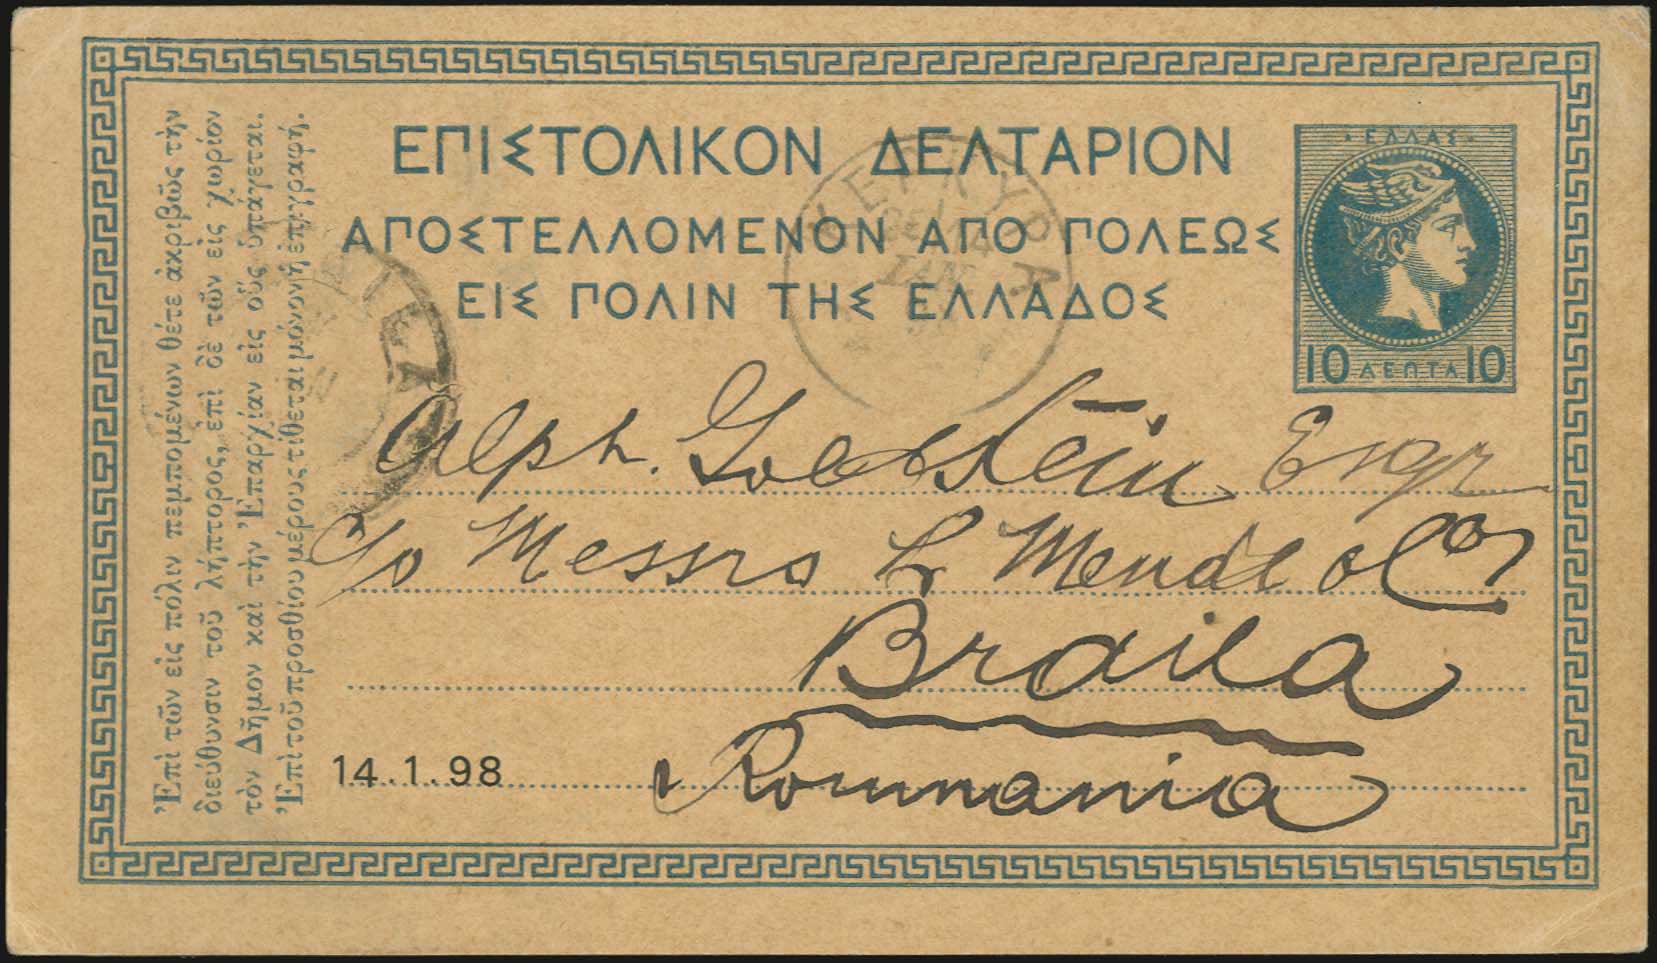 ΕΠΙΣΤΟΛΙΚΟΝ ΔΕΛΤΑΡΙΟΝ
ΑΠΟΣΤΕΛΛΟΜΕΝΟΝ ΑΠΟ ΠΟΛΕΩΣ
ΕΙΣ ΠΟΛΙΝ ΤΗΣ ΕΛΛΑΔΟΣ
ΕΛΛΑΣ
10 ΛΕΠΤΑ 10
ΚΕΡΚΥΡΑ
ΙΑΝ
Alph. Goldstein Esqr
c/o Messrs L Mendl & Co
Braila
Roumania
14.1.98
Ἐπὶ τῶν εἰς πόλιν πεμπομένων θέτε ἀκριβῶς τὴν
διεύθυνσιν τοῦ λήπτορος, ἐπὶ δὲ τῶν εἰς χωρίον
τὸν Δῆμον καὶ τὴν Ἐπαρχίαν εἰς οὓς ὑπάγεται.
Ἐπὶ τοῦ προσθίου μέρους τίθεται μόνον ἡ ἐπιγραφή.